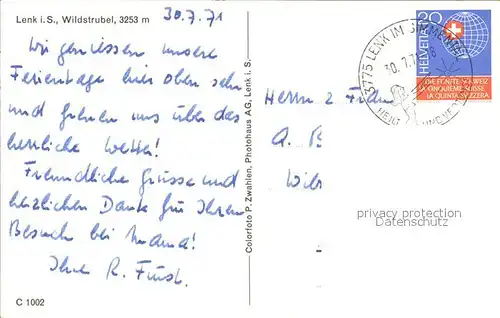 Lenk i.S., Wildstrubel, 3253 m
30.7.71
Wir geniessen unsere
Ferientage hier oben sehr
und freuen uns über das
herrliche Wetter!
Freundliche Grüsse und
herzlichen Dank für Ihren
Besuch bei Mama!
Ihre R. Fürst.
C 1002
Colorfoto P. Zwahlen, Photohaus AG, Lenk i.S.
3775 LENK IM SIMMENTAL
30.7.71
HEIL
20
HELVETIA
DIE FÜNFTE SCHWEIZ
LA CINQUIEME SUISSE
LA QUINTA SVIZZERA
Herrn & Frau
A.
privacy protection
Datenschutz